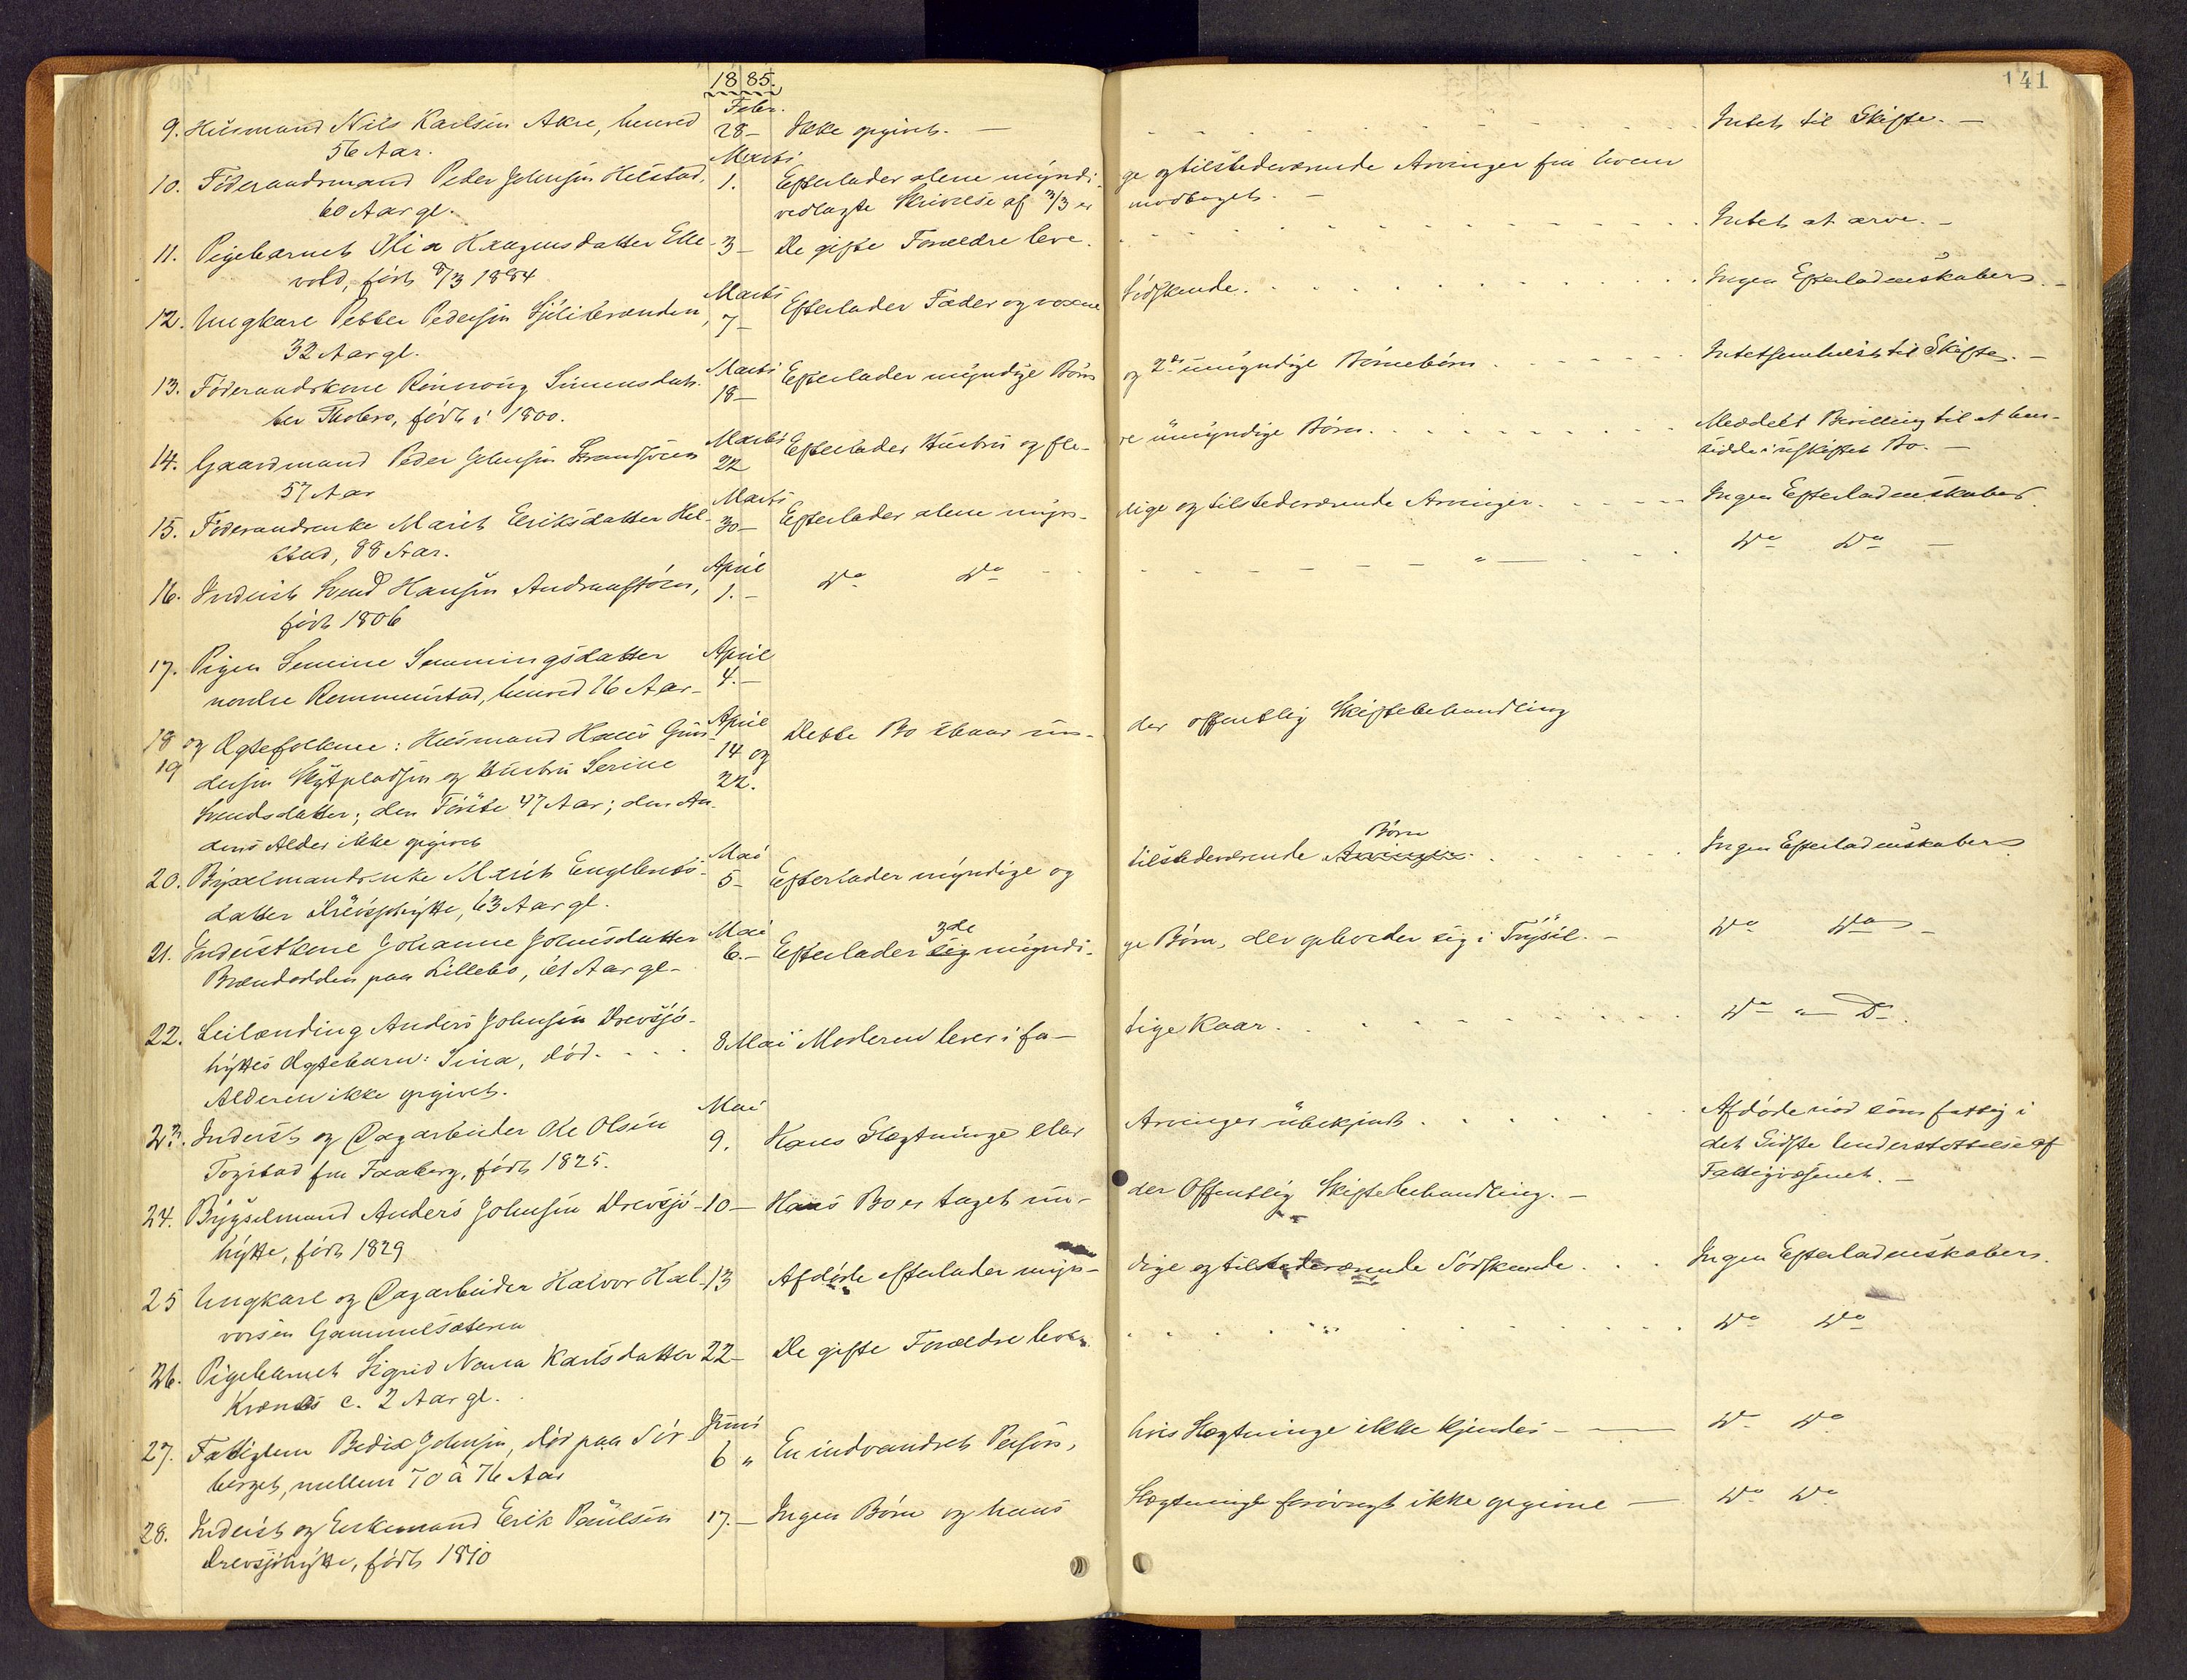 141
1885.
Febr.
9. Husmand Nils Karlsen Akre, henved 28 – Ikke opgivet. – Intet til Skifte. –
56 Aar.
Marts
10. Föderaadsmand Peder Johnsen Helstad, 1. Efterlader alene myndi- ge og tilstedeværende Arvinger fra hvem
60 Aar gl. vedlagte Skrivelse af 3/3 er modtaget. –
11. Pigebarnet Olia Haagensdatter Elle- 3 – De gifte Forældre leve. Intet at arve. –
vold, født 8/3 1884
Marts
12. Ungkarl Petter Pedersen Sjölibrænden, 7 – Efterlader Fader og voxne Sødskende. Ingen Efterladenskaber. –
32 Aar gl.
Marts
13. Föderaadskone Rönnoug Simensdat- 18 – Efterlader myndige Børn og 2de umyndige Børnebørn Intetsomhelst til Skifte. –
ter , født i 1800.
Marts
14. Gaardmand Peder Johnsen 22 Efterlader Hustru og fle- re umyndige Børn. Meddelt Bevilling til at hen-
57 Aar sidde i uskiftet Bo. –
Marts
15. Föderaadsenke Marit Eriksdatter Hel- 30 – Efterlader alene myn- dige og tilstedeværende Arvinger. Ingen Efterladenskaber.
stad, 88 Aar.
April
16. Inderst Svend Hansen , 1. – Do Do " Do Do –
født 1806
April
17. Pigen Semine Semmingsdatter 4. –
nordre Rommunstad, henved 16 Aar –
April
18 og Ægtefolkene: Husmand Hans Gun- 14 og Dette Bo staar un- der offentlig Skiftebehandling
19 dersen og Hustru Serine 22.
Svendsdatter; den Første 47 Aar; den An-
dens Alder ikke opgivet
Mai
20. Bygselmandsenke Marit Engebrets- 5 – Efterlader myndige og tilstedeværende Arvinger Børn Ingen Efterladenskaber
datter Drevsjøhytte, 63 Aar gl.
Mai
21. Inderstkone Johanne Johnsdatter 6. – Efterlader sig 3de myndi- ge Børn, der opholder sig i Trysil. – Do Do –
Brændodden paa Lillebo, 61 Aar gl –
22. Leilænding Anders Johnsen Drevsjø- 8 Mai Moderen lever i fa- tige Kaar. Do " Do.
hyttes Ægtebarn: Sina, død.
Alderen ikke opgivet.
Mai
23. Inderst og Dagarbeider Ole Olsen 9. Hans Slægtninge eller Arvinger ubekjendt. Afdøde nød som fattig i
Togstad fra Faaberg, født 1825. det Sidste Understøttelse af
Fattigvæsenet. –
24. Bygselmand Anders Johnsen Drevsjø- 10 – Hans Bo er taget un- der Offentlig Skiftebehandling. –
hytte, født 1829
25 Ungkarl og Dagarbeider Halvor Hal- 13 Afdøde efterlader myn- dige og tilstedeværende Sødskende. Ingen Efterladenskaber.
vorsen Gammelsæteren
26. Pigebarnet Sigrid Karlsdatter 22 – De gifte Forældre leve. " Do Do
c. 2 Aar gl.
Juni
27. Fattiglem Johnsen, død paa Sør- 6 " En indvandret Person, hvis Slægtninge ikke kjendes – Do Do
berget, mellem 70 à 76 Aar
28. Inderst og Enkemand Erik Paulsen 17. – Ingen Børn og hans Slægtninge forøvrigt ikke opgivne – Do Do
Drevsjøhytte, født 1810